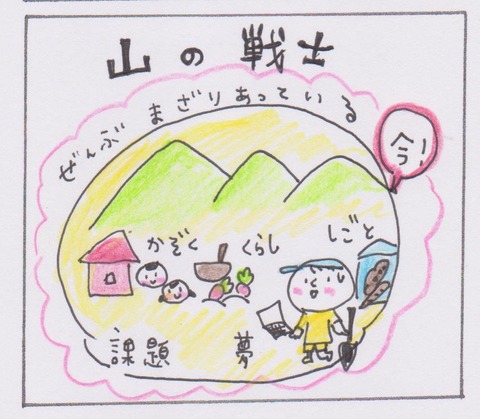 山の戦士
ぜんぶ まざりあっている
今!
かぞく くらし しごと
課題 夢